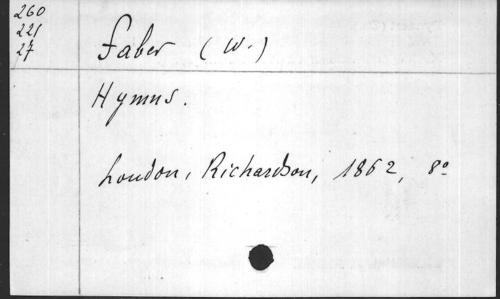 260
221
27
Faber (W.)
Hymns.
London, Richardson, 1862, 8º